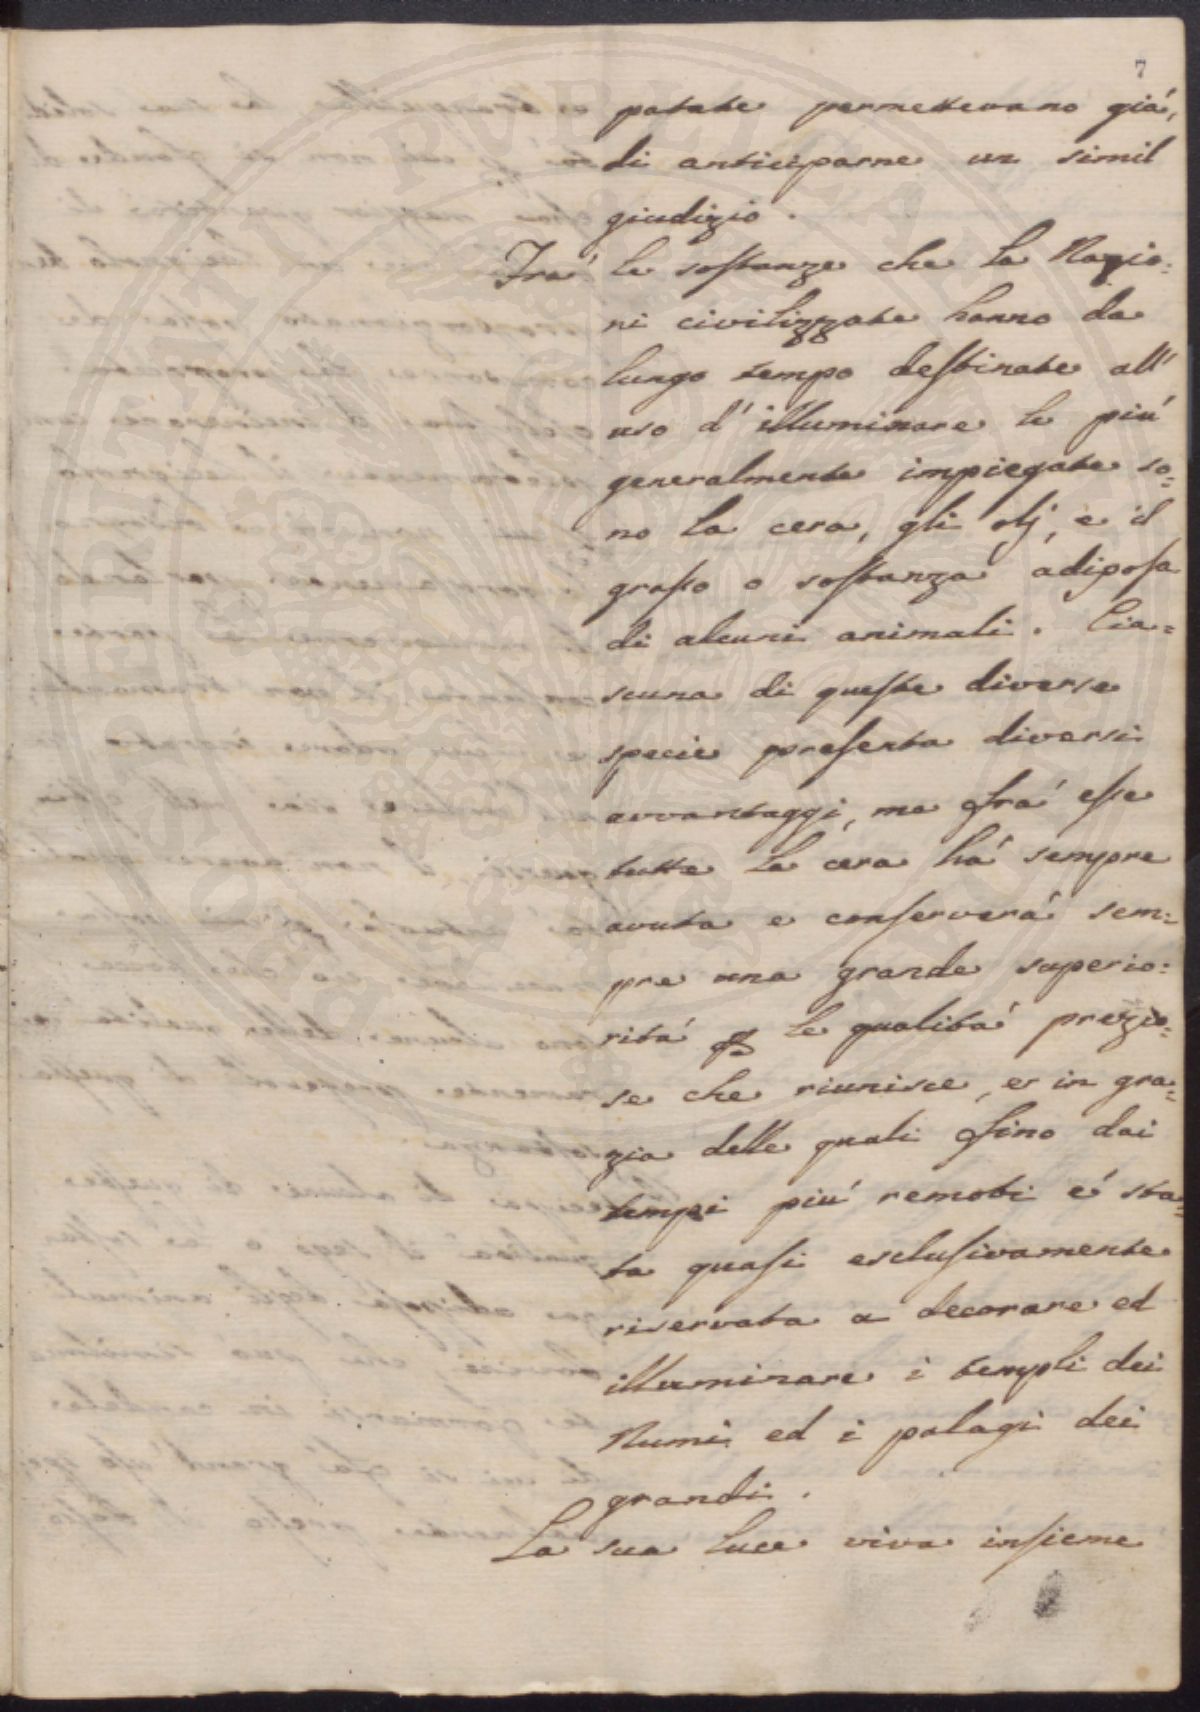 7
patate permettevano giá,
di anticiparne un simil
giudizio.
Frá le sostanze che la Nazio:
ni civilizzate hanno da
lungo tempo destinate all'
uso d'illuminare le piú
generalmente impiegate so:
no la cera, gli olj, e il
graſso o sostanza adiposa
di alcuni animali. Cia=
scuna di queste diverse
specie presenta diversi
avvantaggi, ma frá eſse
tutte la cera há sempre
avuta e conserverá sem:
pre una grande superio:
ritá le qualitá prezio:
se che riunisce, e in gra:
zia delle quali fino dai
tempi piú remoti é sta:
ta quasi esclusivamente
riservata a decorare ed
illuminare i templi dei
Numi ed i palagi dei
grandi.
La sua luce viva insieme